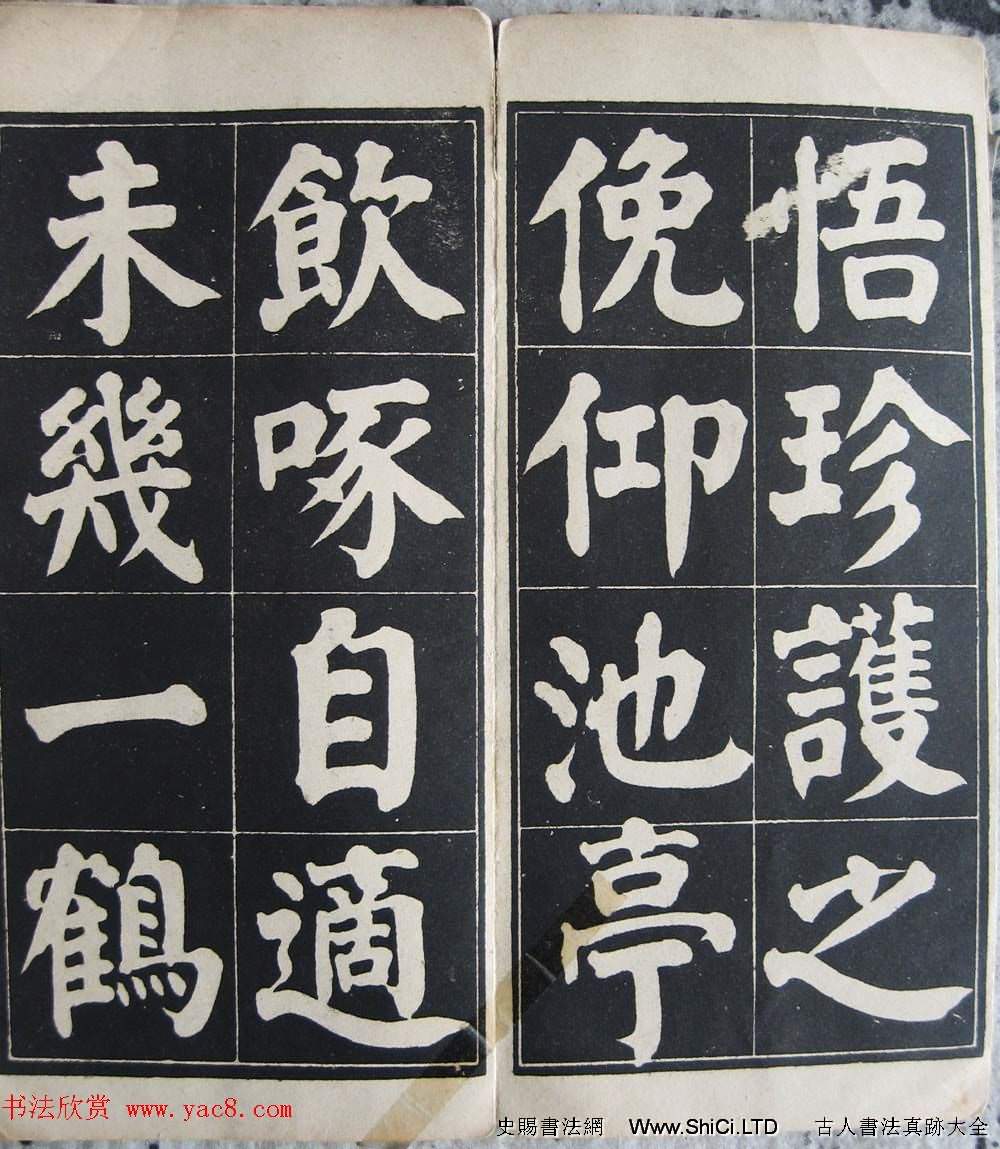 悟珍護之
俛仰池亭
飲啄自適
未幾一鶴
书法欣赏 www.yac8.com
史賜書法網 Www.ShiCi.LTD 古人書法真跡大全